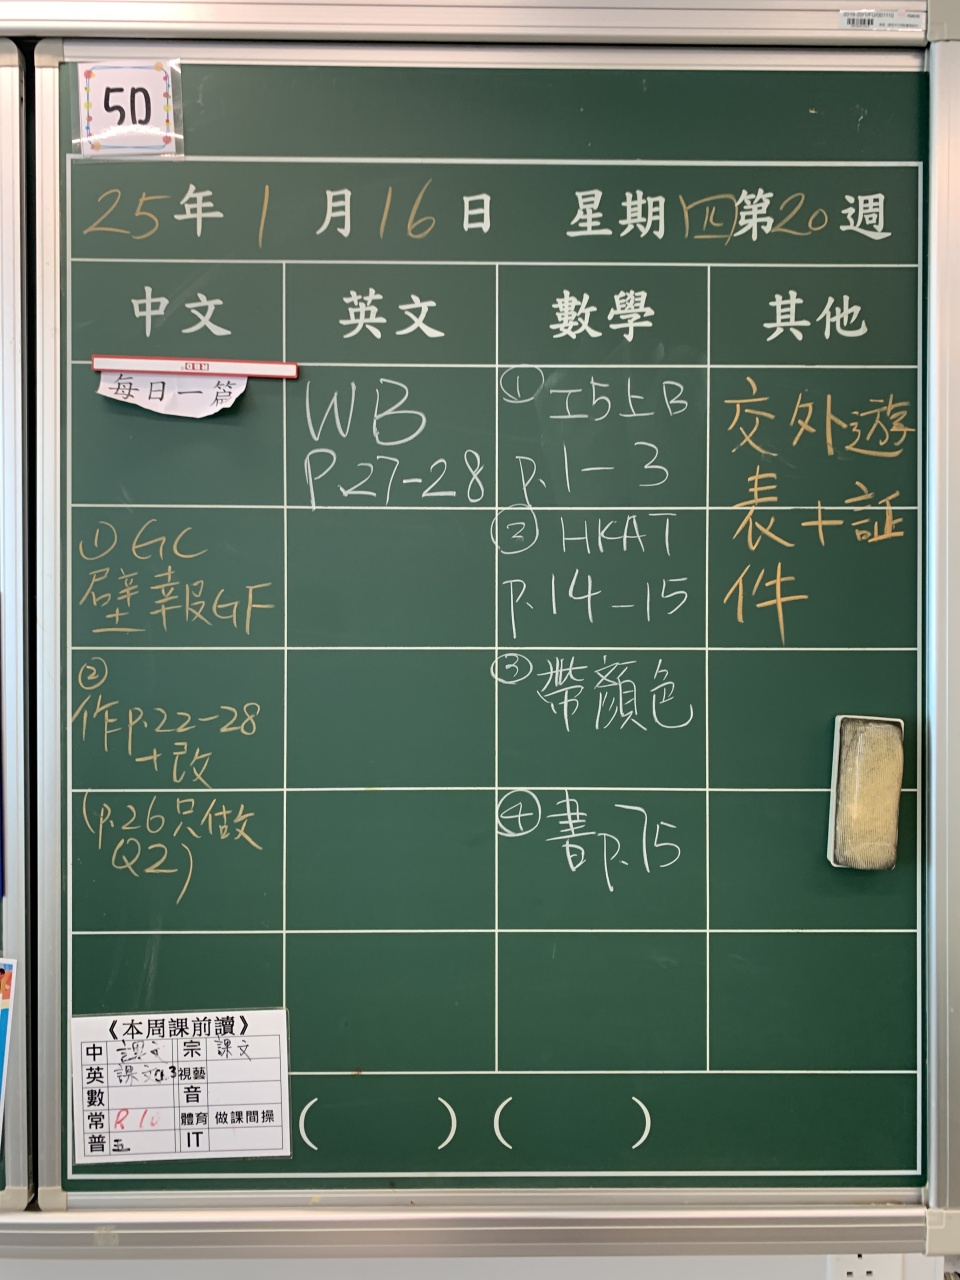 5D
25年1月16日 星期四第20週
中文 英文 數學 其他
每日一篇
① GC
壁報GF
②
作p.22-28
+改
(p.26只做
Q2)
WB
P.27-28
① 工5上B
p.1-3
② HKAT
p.14-15
③ 帶顏色
④ 書p.75
交外遊
表+証
件
《本周課前讀》
中 課文 宗 課文
英 課文 視藝
數 音
常 體育 做課間操
普 五 IT
( ) ( )